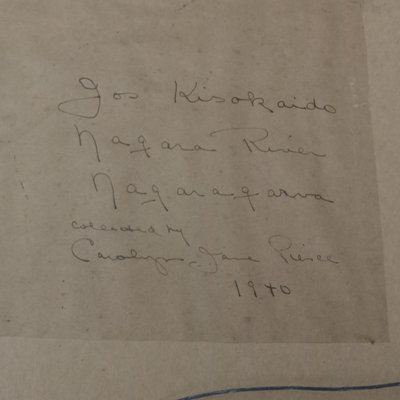 Jos Kisokaido
Nagara River
Nagaragarva
collected by
Carolyn Jane Pierce
1940